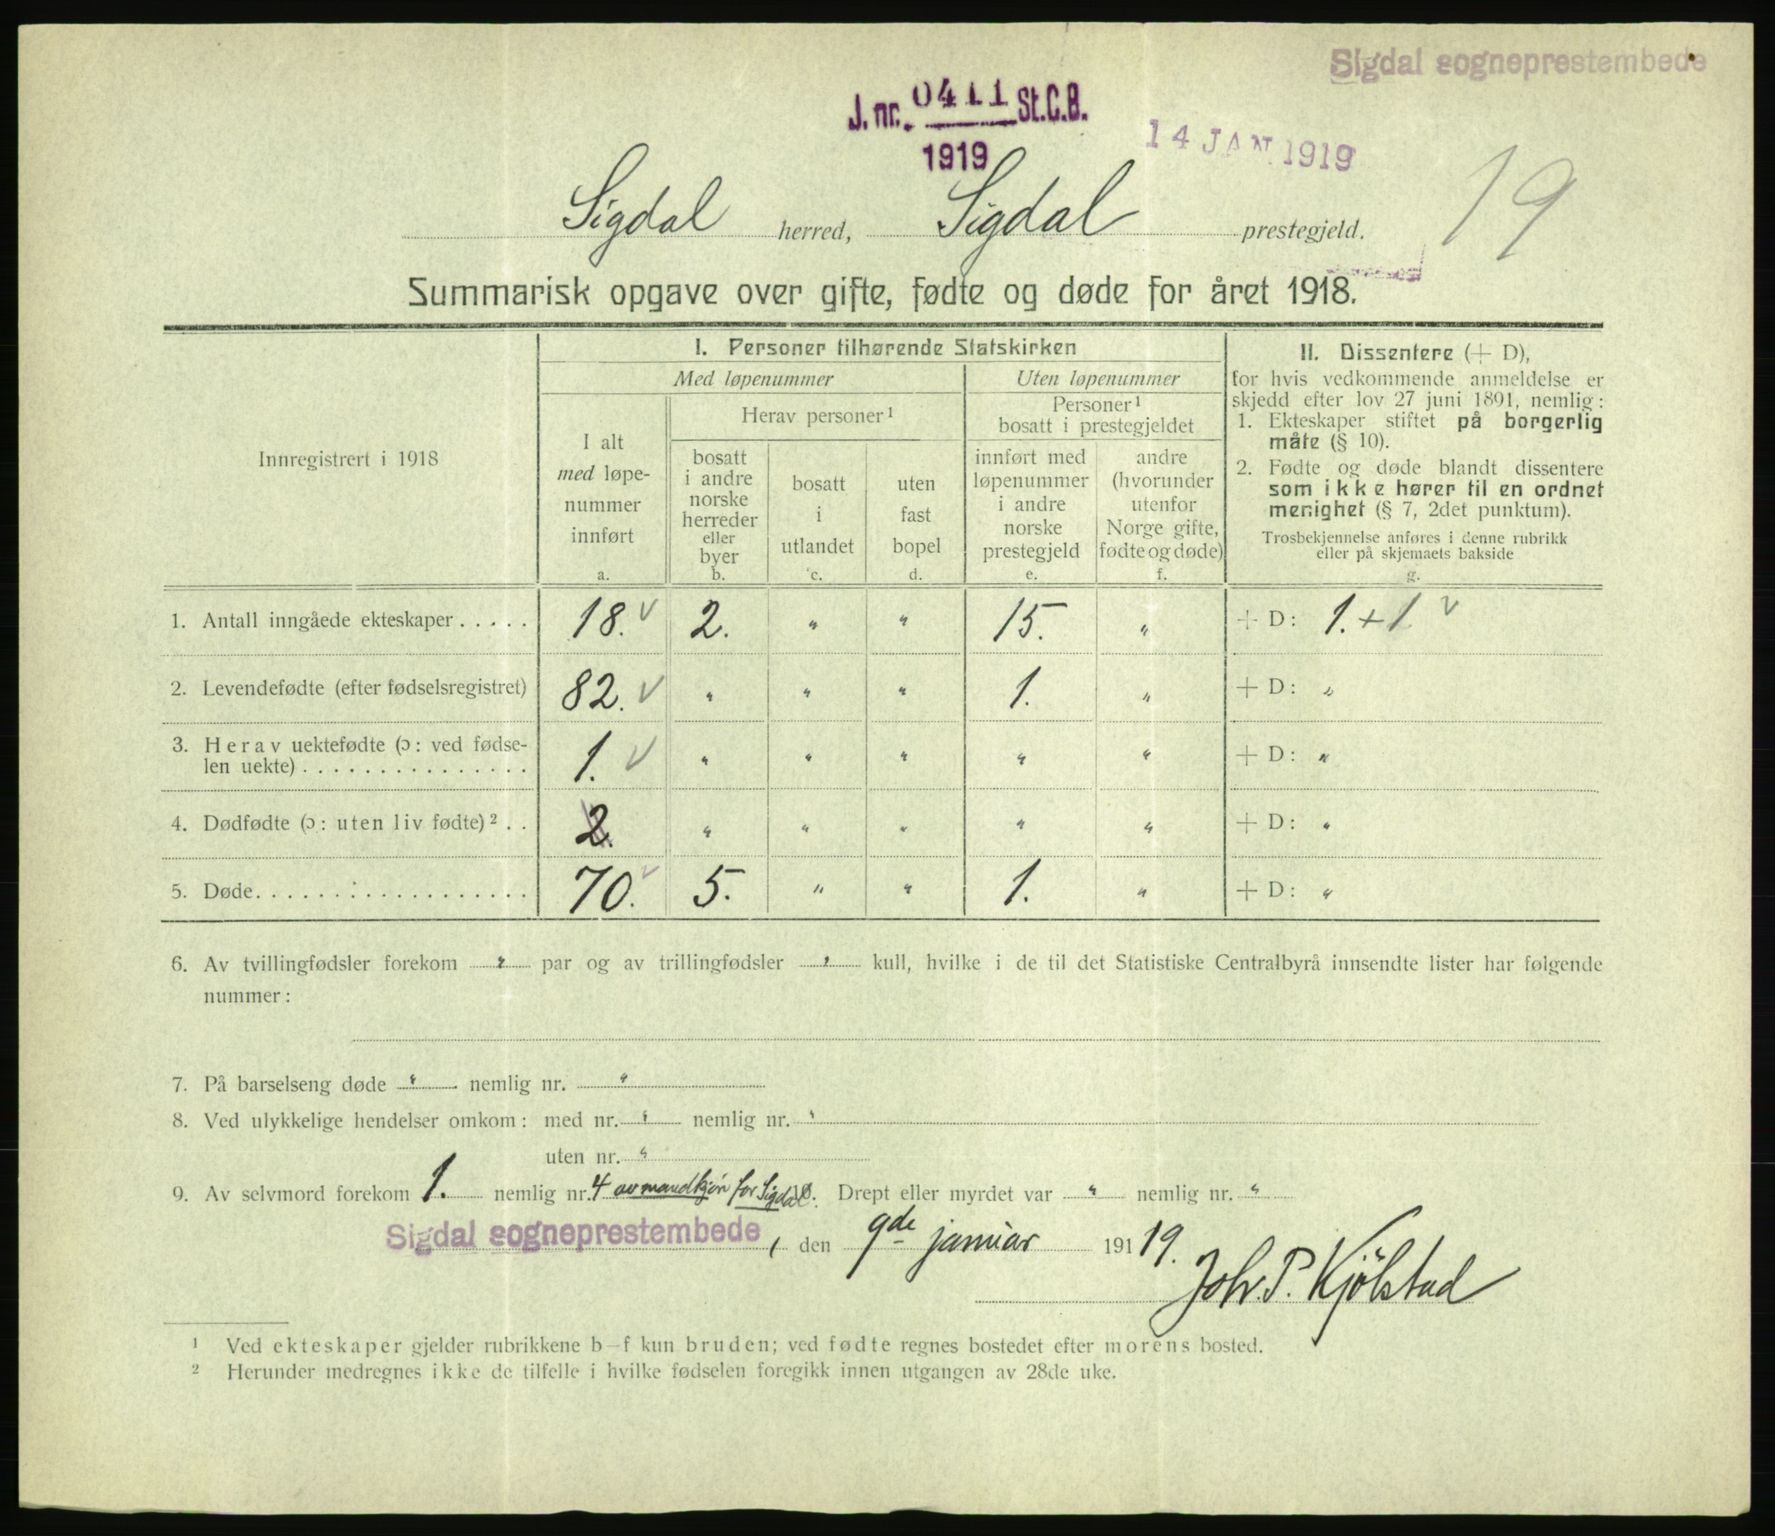 Sigdal sogneprestembede
J. nr. 0411 St.C.B.
1919
14 JAN 1919
19
Sigdal herred, Sigdal prestegjeld.
Summarisk opgave over gifte, fødte og døde for året 1918.
Innregistrert i 1918
I. Personer tilhørende Statskirken
Med løpenummer
Uten løpenummer
I alt
med løpe-
nummer
innført
a.
Herav personer ¹
bosatt
i andre
norske
herreder
eller
byer
b.
bosatt
i
utlandet
c.
uten
fast
bopel
d.
Personer ¹
bosatt i prestegjeldet
innført med
løpenummer
i andre
norske
prestegjeld
e.
andre
(hvorunder
utenfor
Norge gifte,
fødte og døde)
f.
II. Dissentere (+ D),
for hvis vedkommende anmeldelse er
skjedd efter lov 27 juni 1891, nemlig:
1. Ekteskaper stiftet på borgerlig
måte (§ 10).
2. Fødte og døde blandt dissentere
som ikke hører til en ordnet
menighet (§ 7, 2det punktum).
Trosbekjennelse anføres i denne rubrikk
eller på skjemaets bakside
g.
1. Antall inngåede ekteskaper . . . . . 18. ✓ 2. " " 15. " + D: 1. + 1 ✓
2. Levendefødte (efter fødselsregistret) 82. ✓ " " " 1. " + D: "
3. Herav uektefødte (ɔ: ved fødse-
len uekte) . . . . . . . . . . . . . . . 1. ✓ " " " " " + D: "
4. Dødfødte (ɔ: uten liv fødte) ² . . 2. " " " " " + D: "
5. Døde. . . . . . . . . . . . . . . . . . 70. ✓ 5. " " 1. " + D: "
6. Av tvillingfødsler forekom " par og av trillingfødsler " kull, hvilke i de til det Statistiske Centralbyrå innsendte lister har følgende
nummer:
7. På barselseng døde " nemlig nr. "
8. Ved ulykkelige hendelser omkom: med nr. " nemlig nr. "
uten nr. "
9. Av selvmord forekom 1. nemlig nr. 4 av mandkjön for Sigdal. Drept eller myrdet var " nemlig nr. "
Sigdal sogneprestembede, den 9de januar 191 19.
Joh. P. Kjölstad
¹ Ved ekteskaper gjelder rubrikkene b—f kun bruden; ved fødte regnes bostedet efter morens bosted.
² Herunder medregnes ikke de tilfelle i hvilke fødselen foregikk innen utgangen av 28de uke.